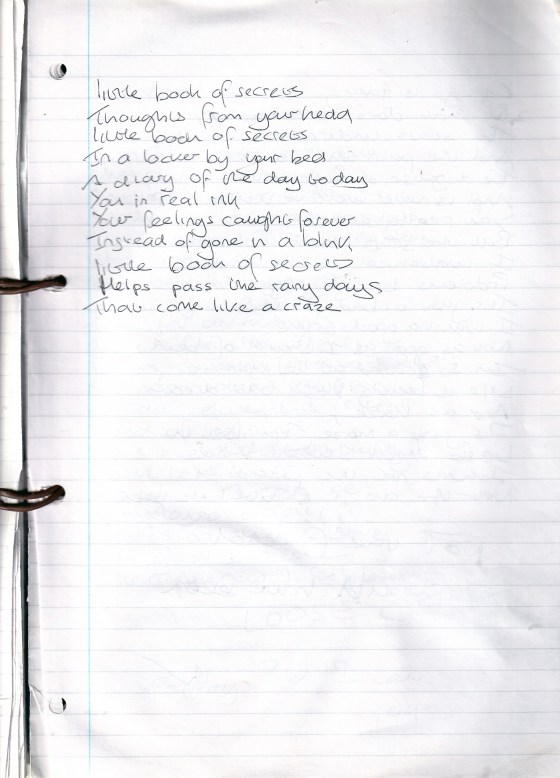 little book of secrets
Thoughts from your head
little book of secrets
In a locker by your bed
A diary of the day to day
You in real ink
Your feelings caught forever
Instead of gone in a blink
little book of secrets
Helps pass the rainy days
That come like a craze